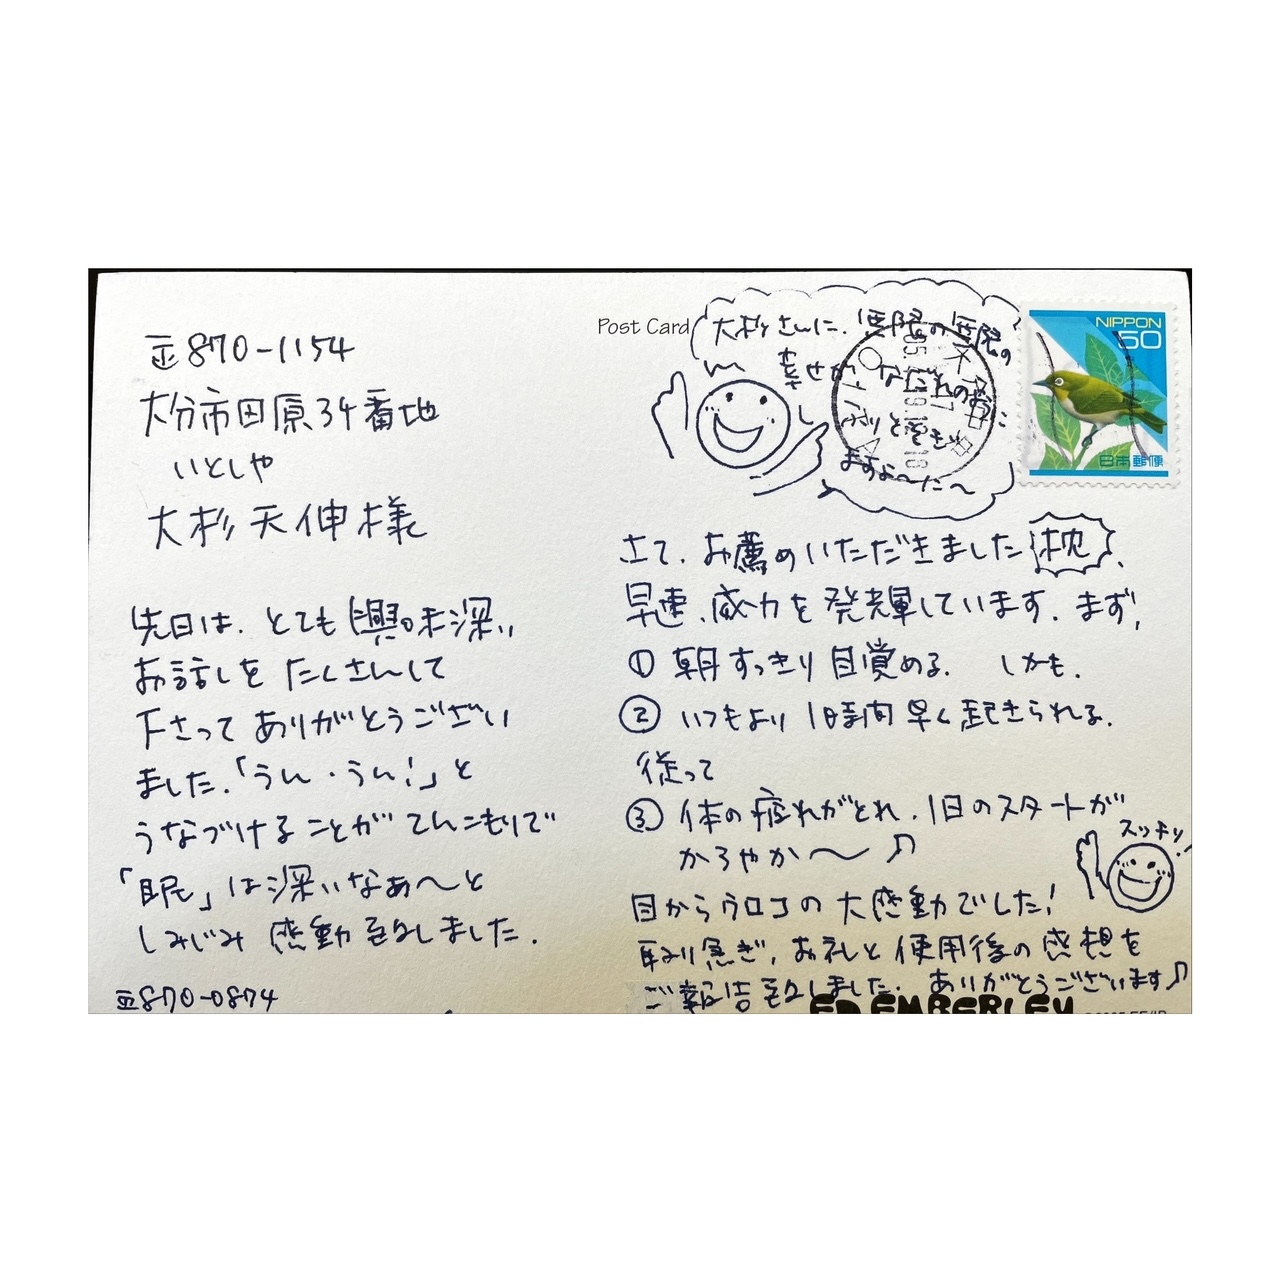 Post Card
〒870-1154
大分市田原34番地
いとしや
大杉天伸様
先日は、とても興味深い
お話しをたくさんして
下さってありがとうござい
ました。「うん・うん!」と
うなづけることがてんこもりで
「眠」は深いなぁ〜と
しみじみ感動致しました。
〒870-0874
大杉さんに、無限の無限の
幸せが
なだれの如に
ますよ〜だ〜
NIPPON
50
日本郵便
さて、お薦めいただきました枕、
早速、威力を発揮しています。まず、
① 朝すっきり目覚める。しかも、
② いつもより1時間早く起きられる。
従って
③ 体の疲れがとれ、1日のスタートが
かろやか〜♪
スッキリ!
目からウロコの大感動でした!
取り急ぎ、お礼と使用後の感想を
ご報告致しました。ありがとうございます♪
ED EMBERLEY